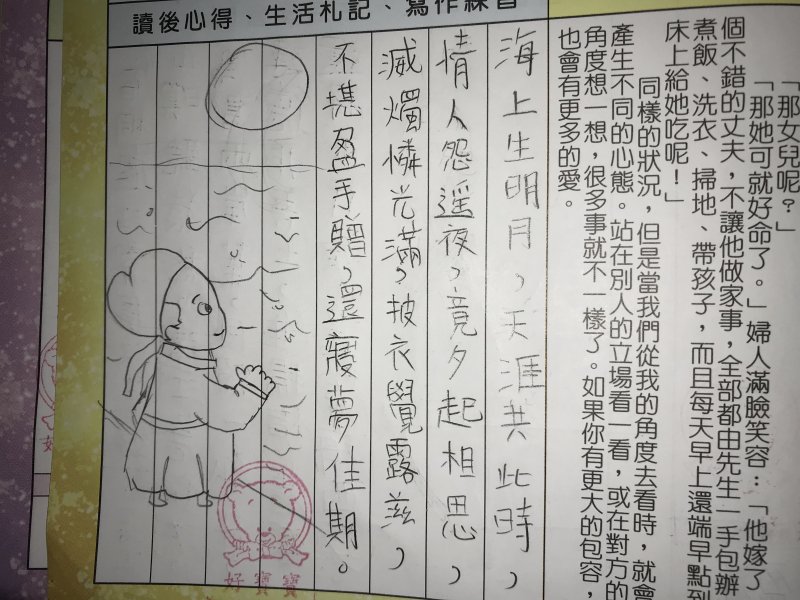 「那女兒呢?」
「那她可就好命了。」婦人滿臉笑容:「他嫁了
個不錯的丈夫,不讓他做家事,全部都由先生一手包辦
煮飯、洗衣、掃地、帶孩子,而且每天早上還端早點到
床上給她吃呢!」
同樣的狀況,但是當我們從我的角度去看時,就會
產生不同的心態。站在別人的立場看一看,或在對方的
角度想一想,很多事就不一樣了。如果你有更大的包容,
也會有更多的愛。
讀後心得、生活札記、寫作練習
海上生明月,天涯共此時,
情人怨遥夜,竟夕起相思,
滅燭憐光滿,披衣覺露滋,
不堪盈手贈,還寢夢佳期。
好寶寶
好